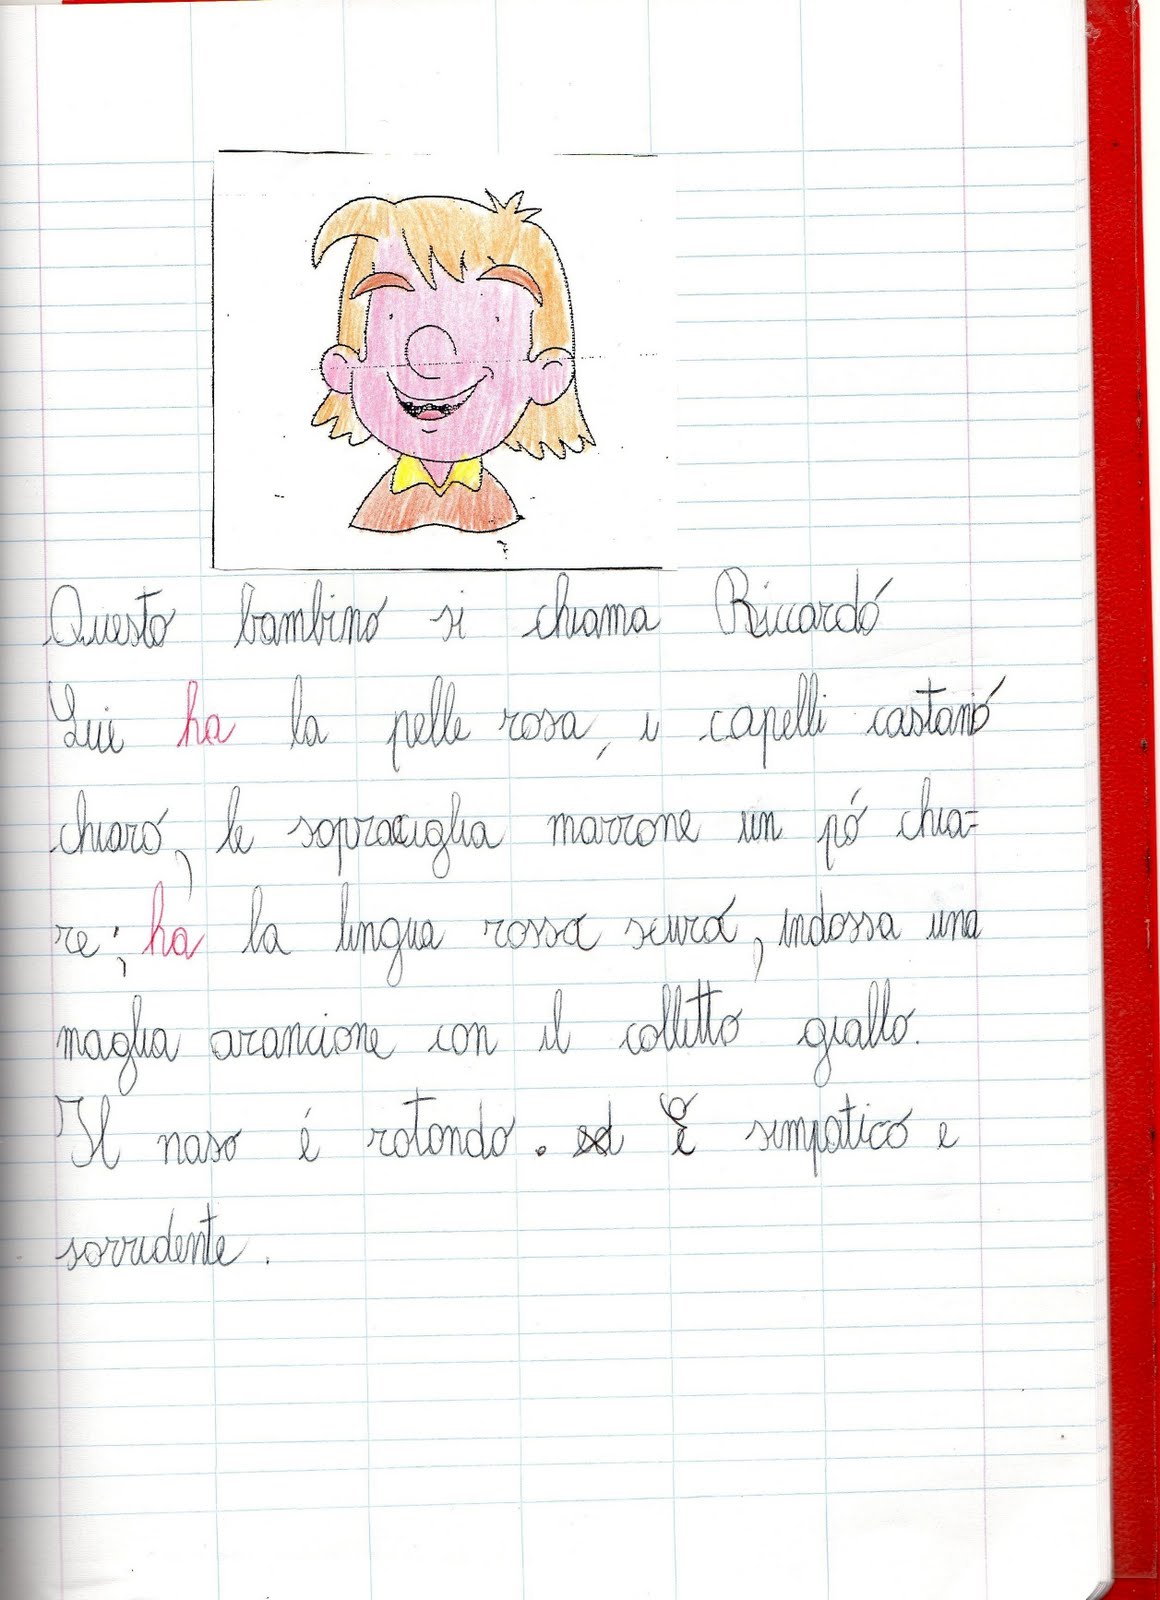 Questo bambino si chiama Riccardo
Lui ha la pelle rosa, i capelli castano
chiaro, le sopracciglia marrone un pó chia=
re; ha la lingua rossa scura, indossa una
maglia arancione con il colletto giallo.
Il naso é rotondo. è simpatico e
sorridente.